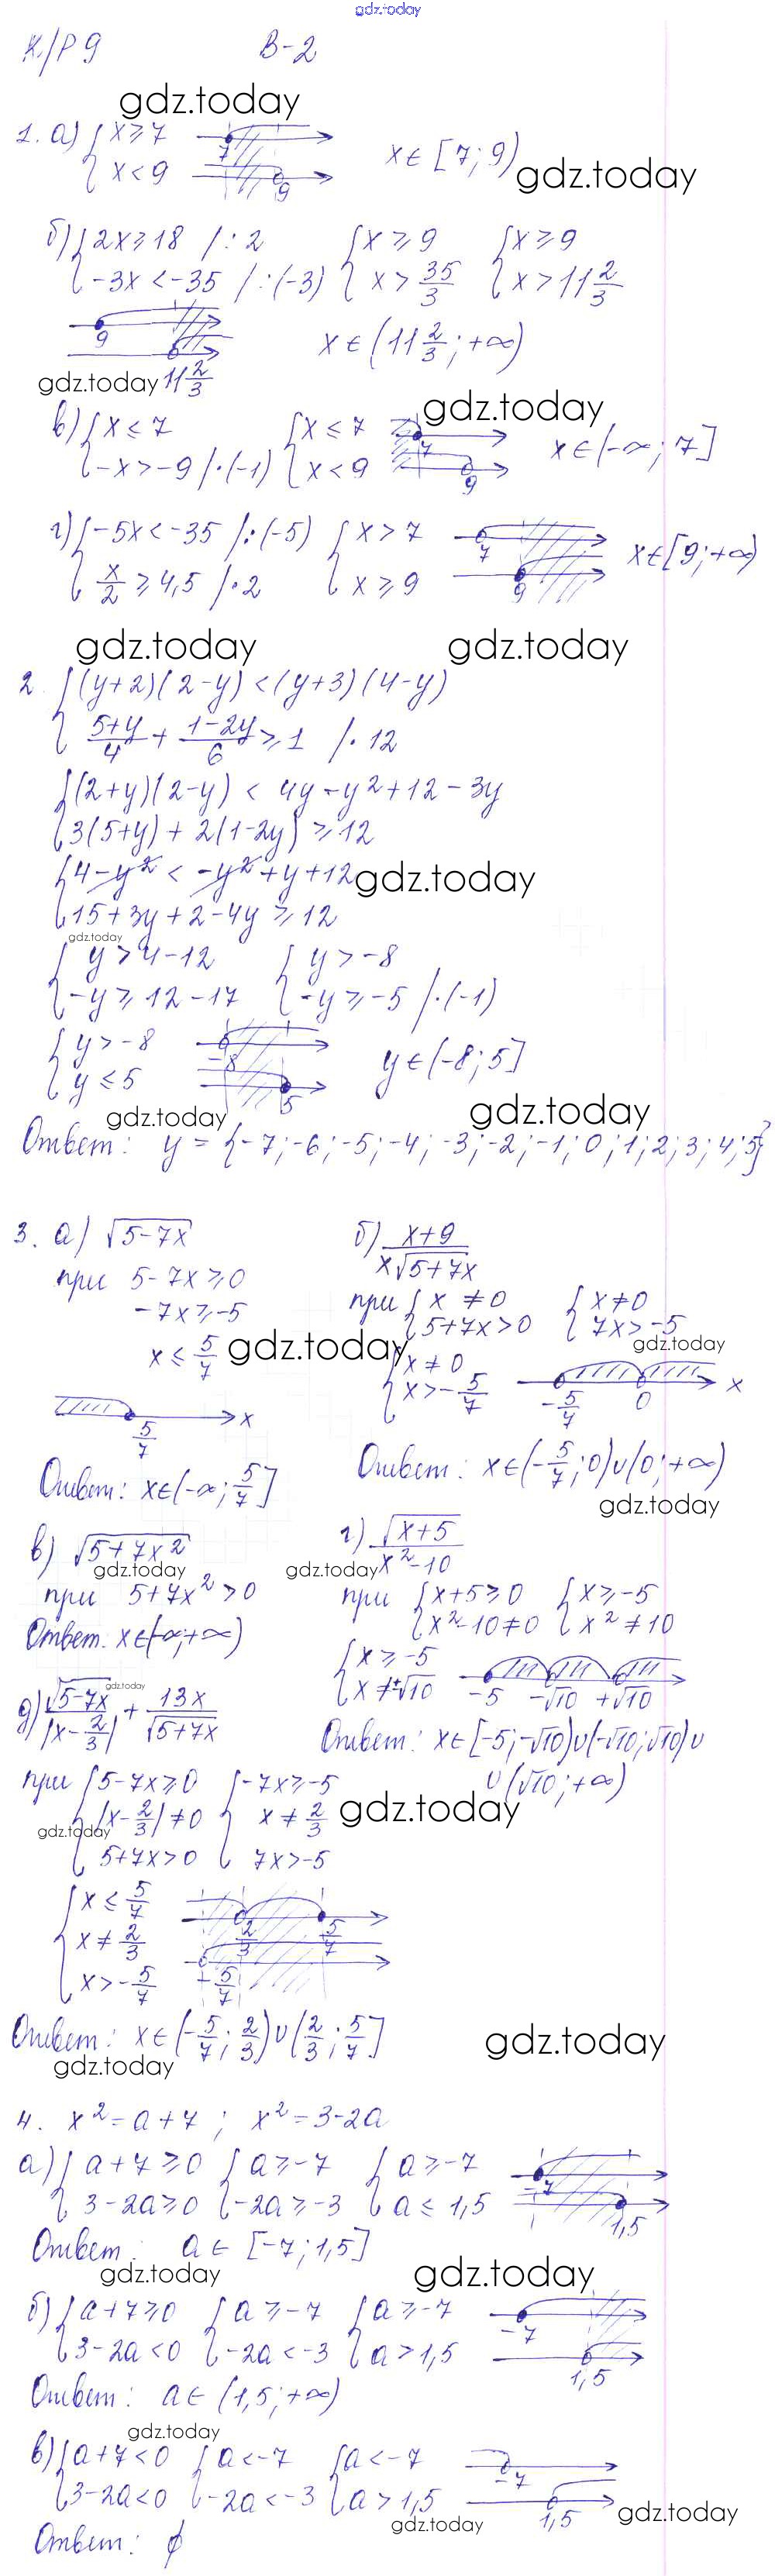 gdz.today
К/Р 9 В-2
gdz.today
1. а) { x ≥ 7
x < 9
7
9
x ∈ [7; 9)
gdz.today
б) { 2x ≥ 18 /: 2 { x ≥ 9 { x ≥ 9
-3x < -35 /: (-3) x > 35/3 x > 11 2/3
9
11 2/3
x ∈ (11 2/3; +∞)
gdz.today
gdz.today
в) { x ≤ 7 { x ≤ 7
-x > -9 /· (-1) x < 9
7
9
x ∈ (-∞; 7]
г) { -5x < -35 /: (-5) { x > 7
x/2 ≥ 4,5 /· 2 x ≥ 9
7
9
x ∈ [9; +∞)
gdz.today gdz.today
2. { (y+2)(2-y) < (y+3)(4-y)
(5+y)/4 + (1-2y)/6 ≥ 1 /· 12
{ (2+y)(2-y) < 4y - y² + 12 - 3y
3(5+y) + 2(1-2y) ≥ 12
{ 4 - y² < -y² + y + 12
gdz.today
15 + 3y + 2 - 4y ≥ 12
gdz.today
{ y > 4 - 12 { y > -8
-y ≥ 12 - 17 -y ≥ -5 /· (-1)
{ y > -8
y ≤ 5
-8
5
y ∈ (-8; 5]
gdz.today gdz.today
Ответ: y = {-7; -6; -5; -4; -3; -2; -1; 0; 1; 2; 3; 4; 5}
3. а) √(5-7x) б) (x+9)/(x√(5+7x))
при 5-7x ≥ 0
-7x ≥ -5
x ≤ 5/7
gdz.today
5/7 x
Ответ: x ∈ (-∞; 5/7]
при { x ≠ 0 { x ≠ 0
5+7x > 0 7x > -5
gdz.today
{ x ≠ 0
x > -5/7
-5/7 0 x
Ответ: x ∈ (-5/7; 0) ∪ (0; +∞)
gdz.today
в) √(5+7x²)
gdz.today
при 5+7x² > 0
Ответ: x ∈ (-∞; +∞)
г) √(x+5)/(x²-10)
gdz.today
при { x+5 ≥ 0 { x ≥ -5
x²-10 ≠ 0 x² ≠ 10
{ x ≥ -5
x ≠ ±√10
-5 -√10 +√10
Ответ: x ∈ [-5; -√10) ∪ (-√10; √10) ∪
∪ (√10; +∞)
gdz.today
д) √(5-7x)/|x - 2/3| + 13x/√(5+7x)
при { 5-7x ≥ 0 { -7x ≥ -5
|x - 2/3| ≠ 0 x ≠ 2/3
gdz.today
gdz.today
5+7x > 0 7x > -5
{ x ≤ 5/7
x ≠ 2/3
x > -5/7
2/3 5/7
-5/7
Ответ: x ∈ (-5/7; 2/3) ∪ (2/3; 5/7]
gdz.today
gdz.today
4. x² = a + 7; x² = 3 - 2a
а) { a + 7 ≥ 0 { a ≥ -7 { a ≥ -7
3 - 2a ≥ 0 -2a ≥ -3 a ≤ 1,5
-7
1,5
Ответ: a ∈ [-7; 1,5]
gdz.today gdz.today
б) { a + 7 ≥ 0 { a ≥ -7 { a ≥ -7
3 - 2a < 0 -2a < -3 a > 1,5
-7
1,5
Ответ: a ∈ (1,5; +∞)
gdz.today
в) { a + 7 < 0 { a < -7 { a < -7
3 - 2a < 0 -2a < -3 a > 1,5
-7
1,5
gdz.today gdz.today
Ответ: ∅